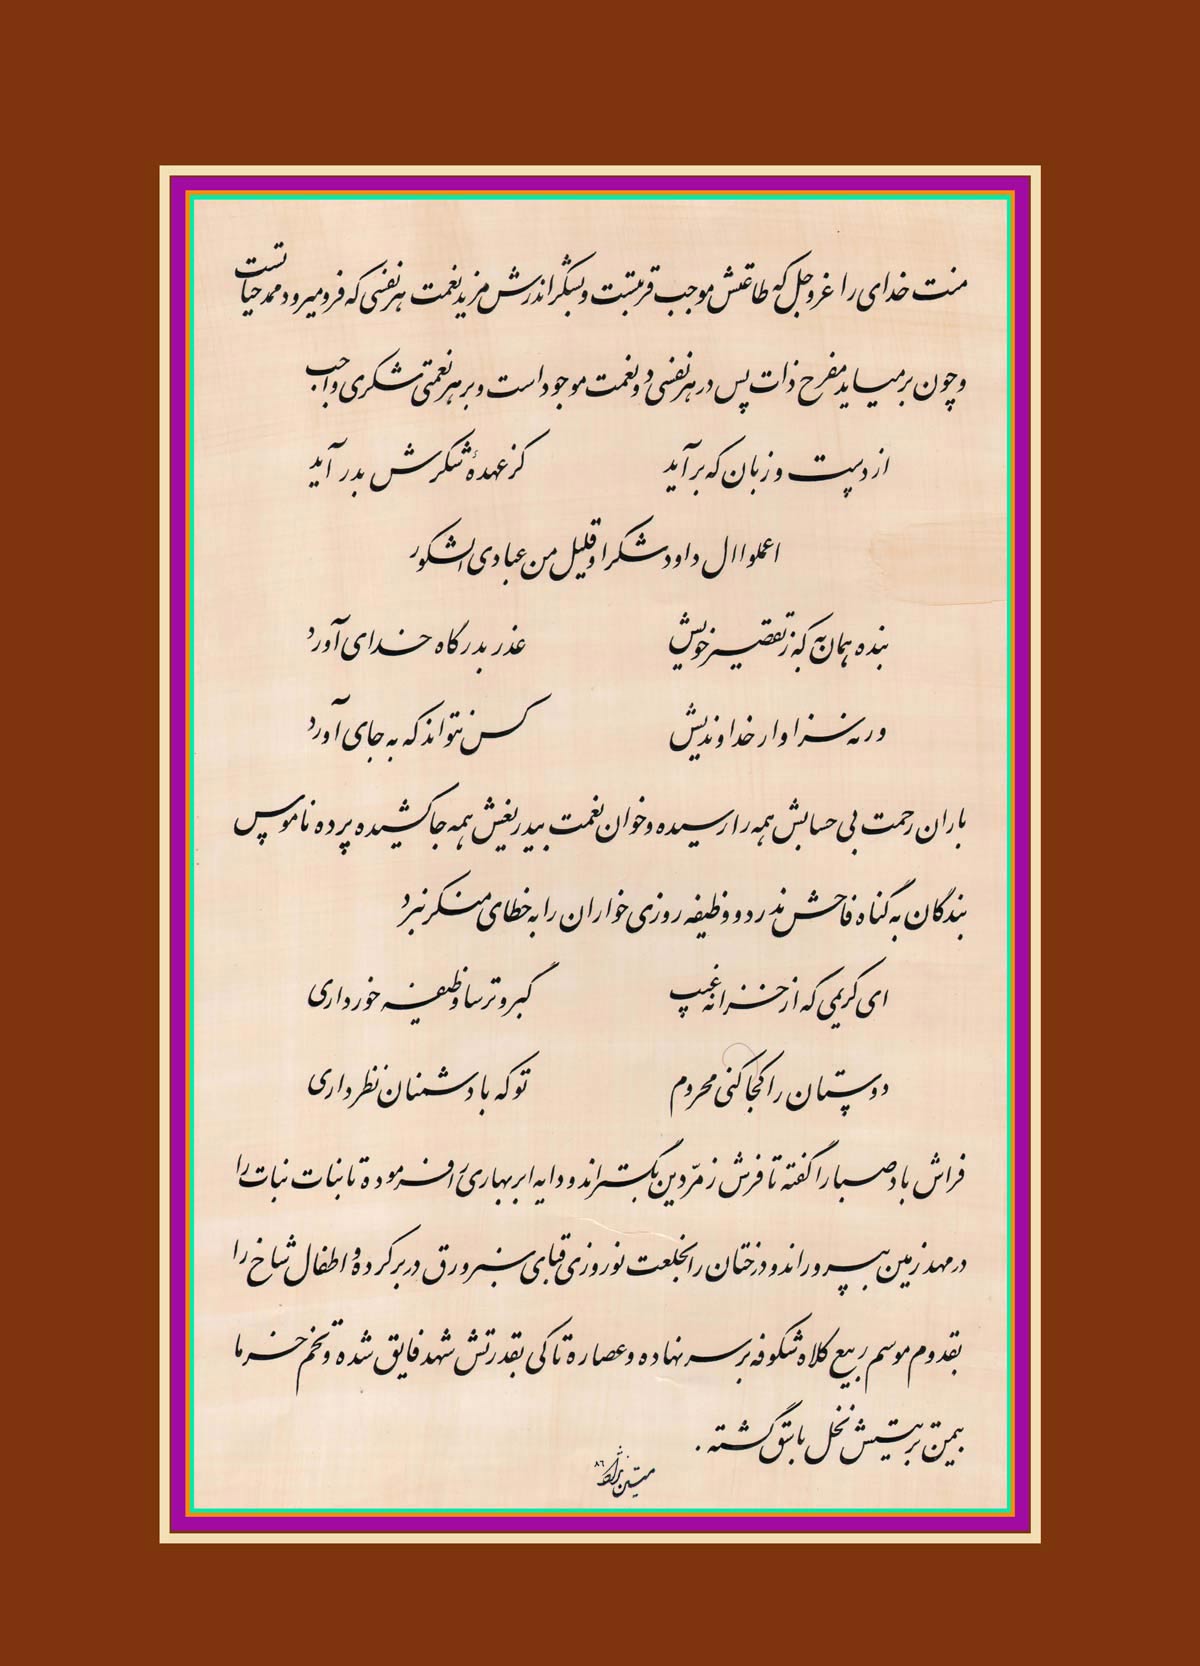 منت خدای را عزوجل که طاعتش موجب قربتست و بشکر اندرش مزید نعمت هر نفسی که فرو میرود ممد حیاتست
و چون برمیاید مفرح ذات پس در هر نفسی دو نعمت موجود است و بر هر نعمتی شکری واجب
از دست و زبان که برآید کز عهدهٔ شکرش بدر آید
اعملوا ال داود شکرا و قلیل من عبادی الشکور
بنده همان به که ز تقصیر خویش عذر بدرگاه خدای آورد
ورنه سزاوار خداوندیش کس نتواند که به جای آورد
باران رحمت بی حسابش همه را رسیده و خوان نعمت بیدریغش همه جا کشیده پرده ناموس
بندگان به گناه فاحش ندرد و وظیفه روزی خواران را به خطای منکر نبرد
ای کریمی که از خزانه غیب گبر و ترسا وظیفه خور داری
دوستان را کجا کنی محروم تو که با دشمنان نظر داری
فراش باد صبا را گفته تا فرش زمرّدین بگستراند و دایه ابر بهاری را فرموده تا بنات نبات را
در مهد زمین بپروراند و درختان را بخلعت نوروزی قبای سبز ورق در بر کرده و اطفال شاخ را
بقدوم موسم ربیع کلاه شکوفه بر سر نهاده و عصاره تاکی بقدرتش شهد فایق شده و تخم خرما
بیمن تربیتش نخل باسق گشته.
۸۶